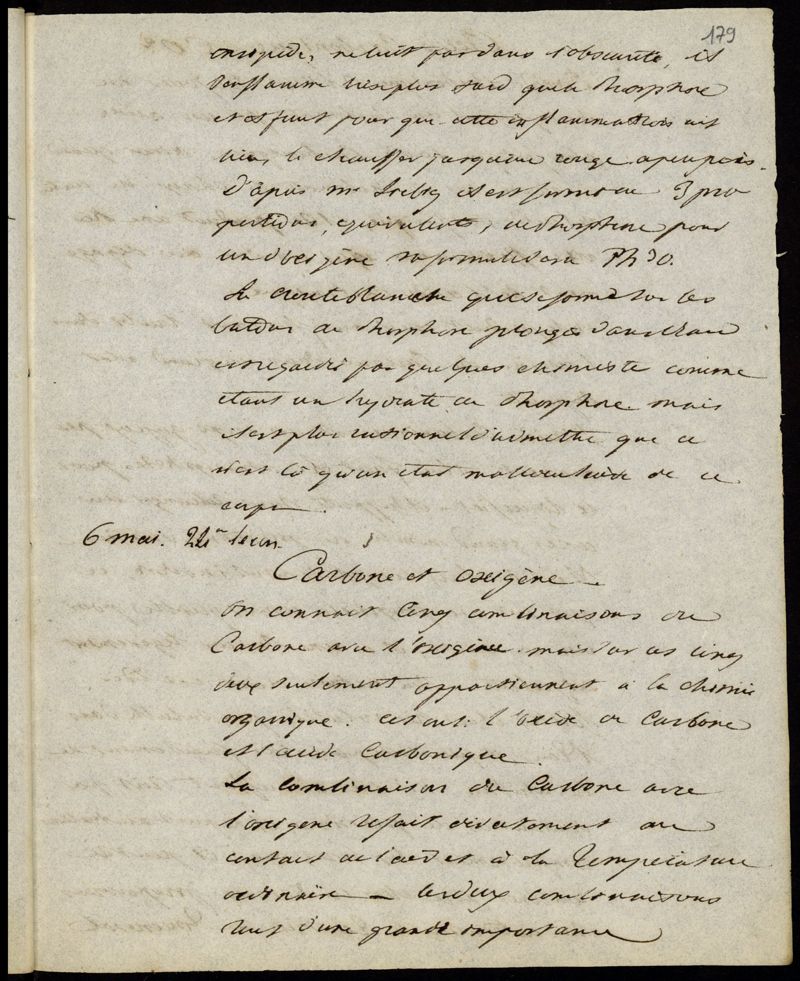 179
insipide, ne luit pas dans l'obscurité, il
s'enflamme bien plus tard que le Phosphore
et il faut pour que cette inflammation ait
lieu, le chauffer jusqu'au rouge a peu près.
D'après Mr il est formé de 3 pro
portions, équivalents, de Phosphore pour
un d'oxigène sa formule sera Ph3O.
La croute blanche qui se forme sur les
batons de Phosphore plongés dans l'eau
est regardée par quelques chimiste comme
étant un hydrate de Phosphore mais
il est plus rationnel d'admettre que ce
n'est là qu'un état moléculaire de ce
corps.
6 mai. leçon
Carbone et oxigène
On connait cinq combinaisons de
Carbone avec l'oxigène mais sur ces cinq
deux seulement appartiennent à la chimie
organique. ce sont: l'oxide de Carbone
et l'acide Carbonique.
La combinaison du Carbone avec
l'oxigène se fait directement au
contact de l'air et à la Température
ordinaire — les deux combinaisons
sont d'une grande importance